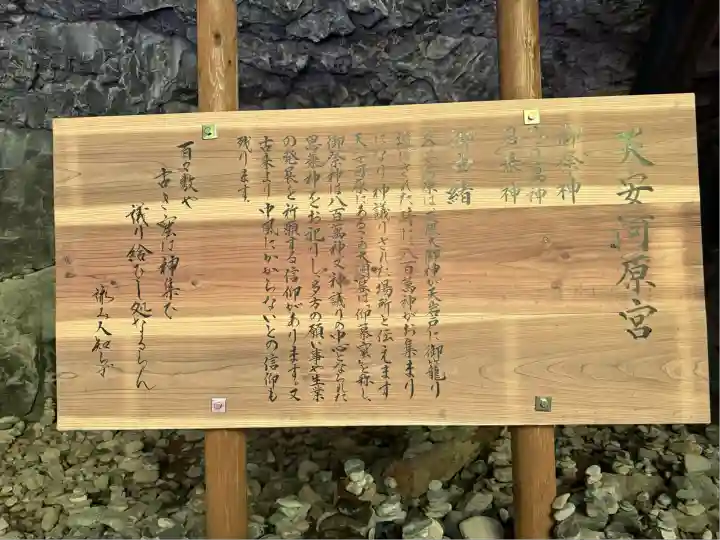 天安河原宮
御祭神
八百萬神
思兼神
御由緒
天安河原は天照大御神が天岩戸に御籠り
遊ばされた時に八百萬神がお集まり
になり神議りされた場所と伝えます
天安河原にあるこの大洞窟は御幕窟と称し、
御祭神は八百萬神又神議りの中心となられた
思兼神をお祀りし、多方の願い事や生業
の発展を祈願する信仰があります。又
古来より中風にかからないとの信仰も
残ります。
百々敷や
古き窟は神集ひ
議り給ひし処なるらん
詠み人知らず